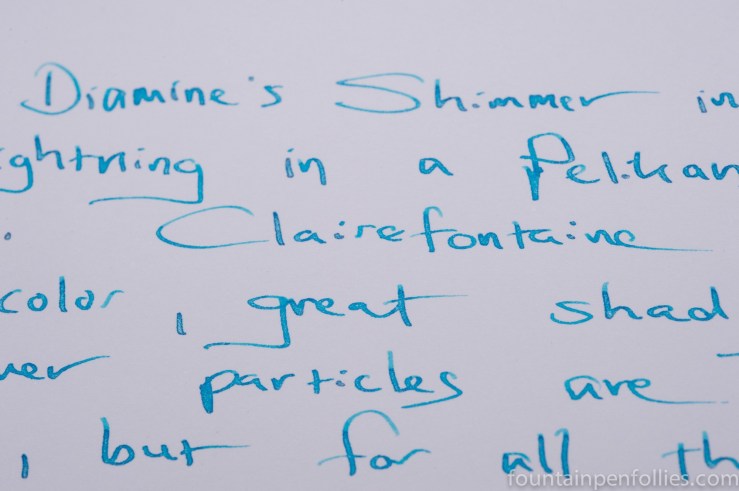 Diamine's Shimmer in
ightning in a Pelikan
. Clairefontaine
color, great shad
mer particles are
, but for all th
fountainpenfollies.com